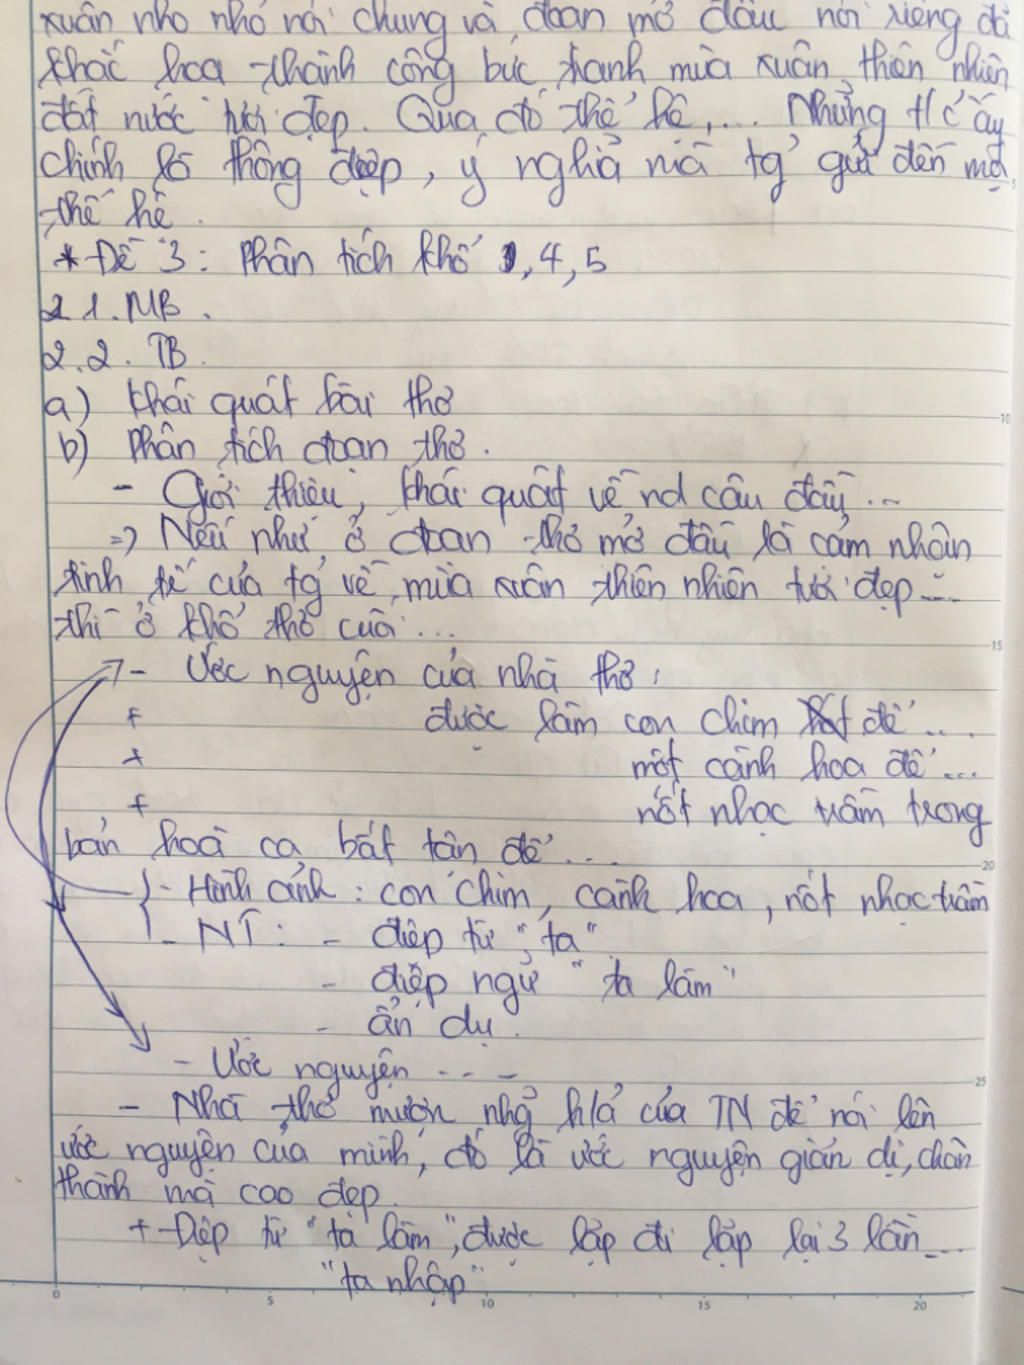 xuân nho nhỏ nói chung và đoạn mở đầu nói riêng đã
khắc hoạ thành công bức tranh mùa xuân thiên nhiên
đất nước tươi đẹp. Qua đó thể hê,... Những t/c ấy
chính là thông điệp, ý nghĩa mà tg' gửi đến mọi
thế hệ.
* Đề 3: Phân tích khổ 1, 4, 5
2.1. MB.
2.2. TB.
a) Khái quát bài thơ
b) Phân tích đoạn thơ.
- Giới thiệu, khái quát về nd câu đầu...
=> Nếu như ở đoạn thơ mở đầu là cảm nhận
tinh tế của tg' về mùa xuân thiên nhiên tươi đẹp...
thì ở khổ thơ cuối...
- Ước nguyện của nhà thơ:
+ được làm con chim hót để...
+ một cành hoa để...
+ nốt nhạc trầm trong
bản hoà ca bất tận để...
- Hình ảnh: con chim, cành hoa, nốt nhạc trầm
- NT: - điệp từ "ta"
- điệp ngữ "ta làm"
- ẩn dụ.
- Ước nguyện ...
- Nhà thơ mượn những h/ả của TN để nói lên
ước nguyện của mình, đó là ước nguyện giản dị, chân
thành mà cao đẹp.
+ Điệp từ "ta làm", được lặp đi lặp lại 3 lần...
"ta nhập"